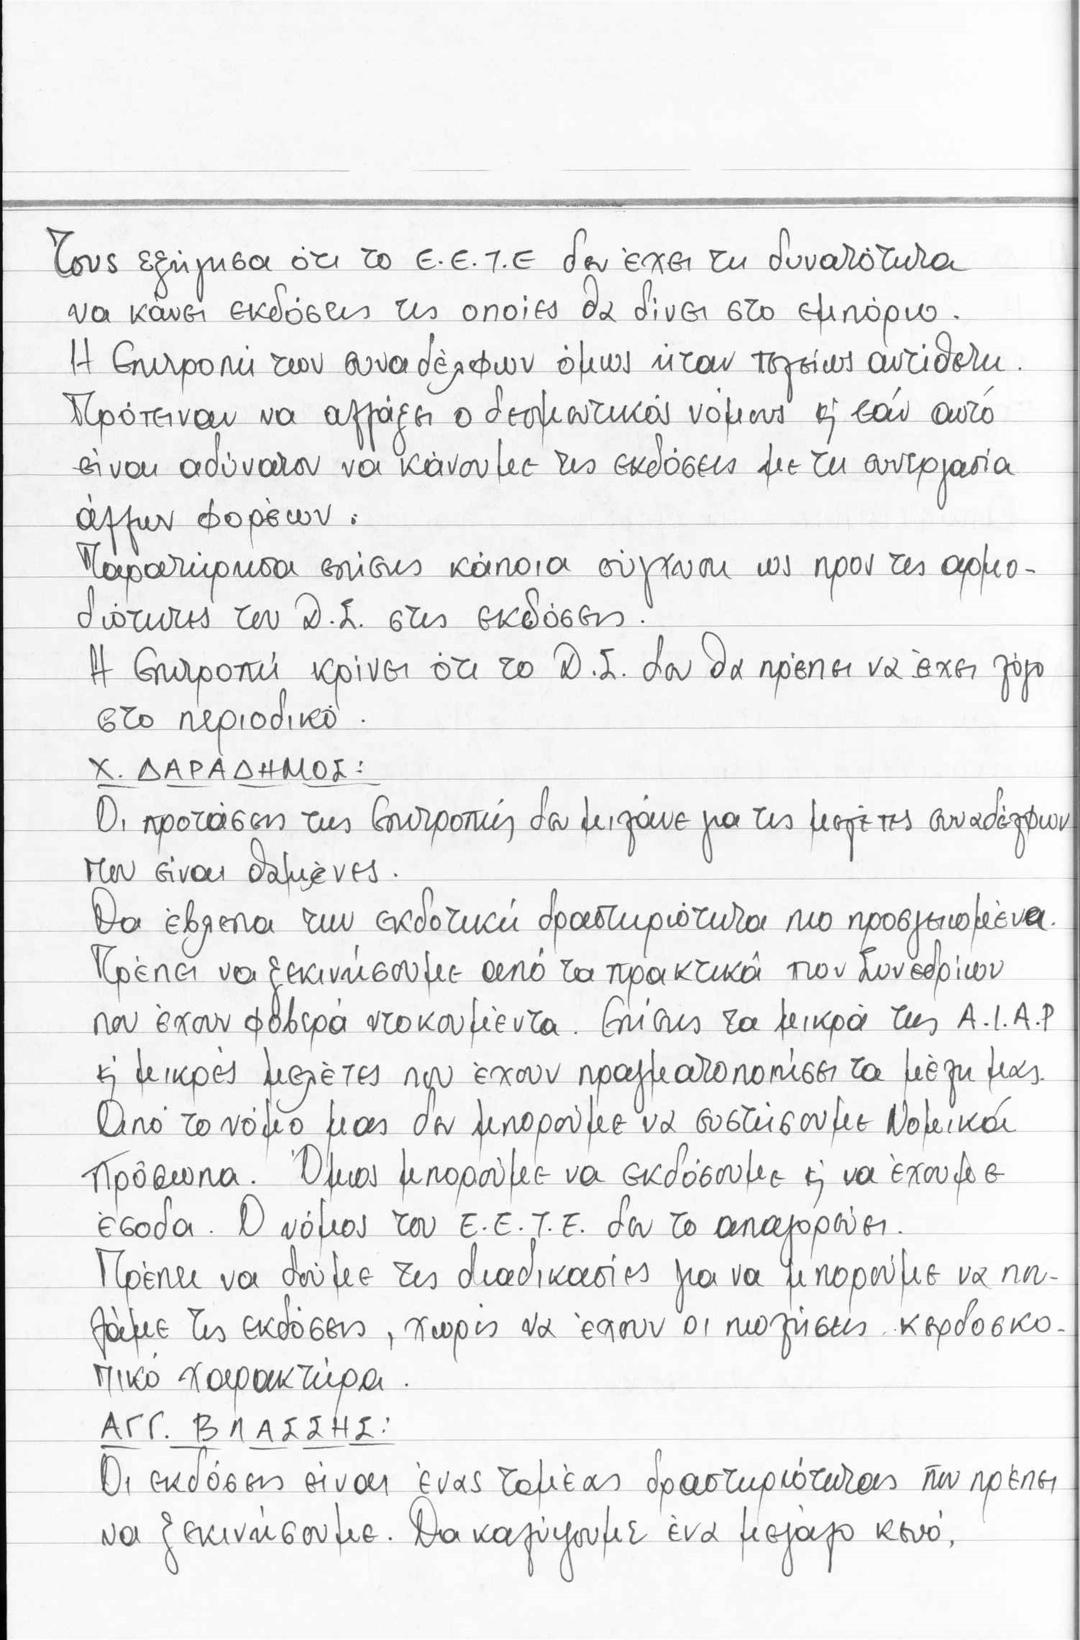 Τους εξήγησα ότι το Ε.Ε.Τ.Ε δεν έχει τη δυνατότητα
να κάνει εκδόσεις τις οποίες θα δίνει στο εμπόριο.
Η Επιτροπή των συναδέλφων όμως ήταν τελείως αντίθετη.
Πρότειναν να αλλάξει ο δεσμευτικός νόμους κ' εάν αυτό
είναι αδύνατον να κάνουμε τις εκδόσεις με τη συνεργασία
άλλων φορέων.
Παρατήρησα επίσης κάποια σύγχυση ως προς τις αρμο-
διότητες του Δ.Σ. στις εκδόσεις.
Η Επιτροπή κρίνει ότι το Δ.Σ. δεν θα πρέπει να έχει λόγο
στο περιοδικό.
Χ. ΔΑΡΑΔΗΜΟΣ:
Οι προτάσεις της Επιτροπής δεν μιλάνε για τις μελέτες συναδέλφων
που είναι θαμμένες.
Θα έβλεπα την εκδοτική δραστηριότητα πιο προσγειωμένα.
Πρέπει να ξεκινήσουμε από τα πρακτικά των Συνεδρίων
που έχουν φοβερά ντοκουμέντα. Επίσης τα μικρά της A.I.A.P
κ' μικρές μελέτες που έχουν πραγματοποιήσει τα μέλη μας.
Από το νόμο μας δεν μπορούμε να συστήσουμε Νομικά
Πρόσωπα. Όμως μπορούμε να εκδόσουμε κ' να έχουμε
έσοδα. Ο νόμος του Ε.Ε.Τ.Ε. δεν το απαγορεύει.
Πρέπει να δούμε τις διαδικασίες για να μπορούμε να που-
λάμε τις εκδόσεις, χωρίς να έχουν οι πωλήσεις κερδοσκο-
πικό χαρακτήρα.
ΑΓΓ. ΒΛΑΣΣΗΣ:
Οι εκδόσεις είναι ένας τομέας δραστηριότητας που πρέπει
να ξεκινήσουμε. Θα καλύψουμε ένα μεγάλο κενό,